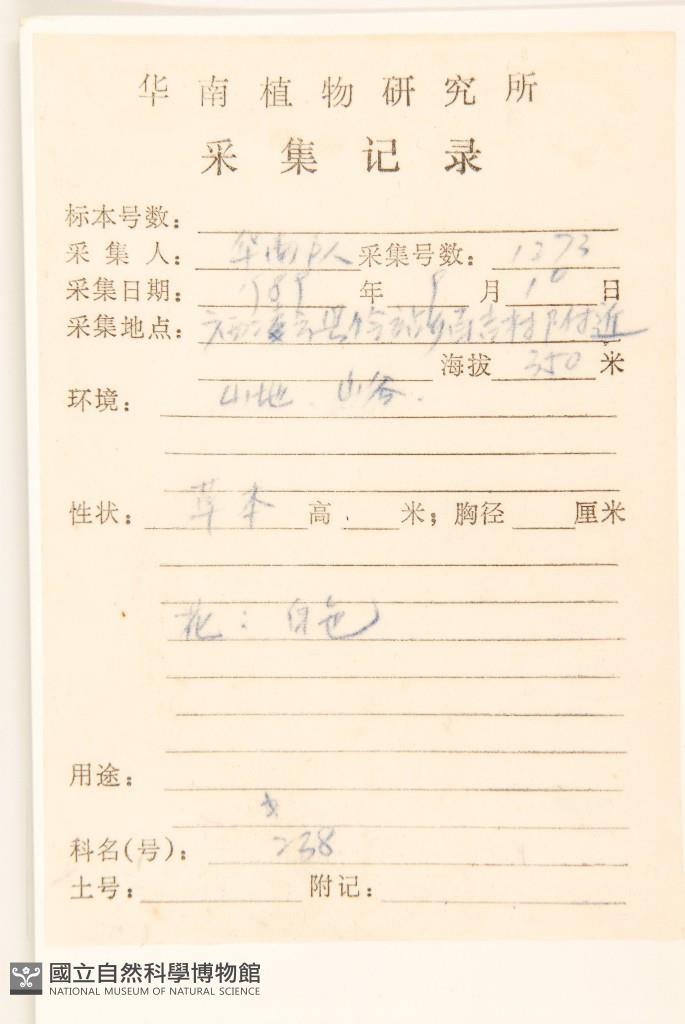 华南植物研究所
采集记录
标本号数:
采集人: 华南 队 采集号数: 1273
采集日期: 1989 年 9 月 10 日
采集地点: 附近
海拔 350 米
环境: 山地. 山谷.
性状: 草本 高 米; 胸径 厘米
花: 白色
用途:
科名(号): 238
土号: 附记:
國立自然科學博物館
NATIONAL MUSEUM OF NATURAL SCIENCE